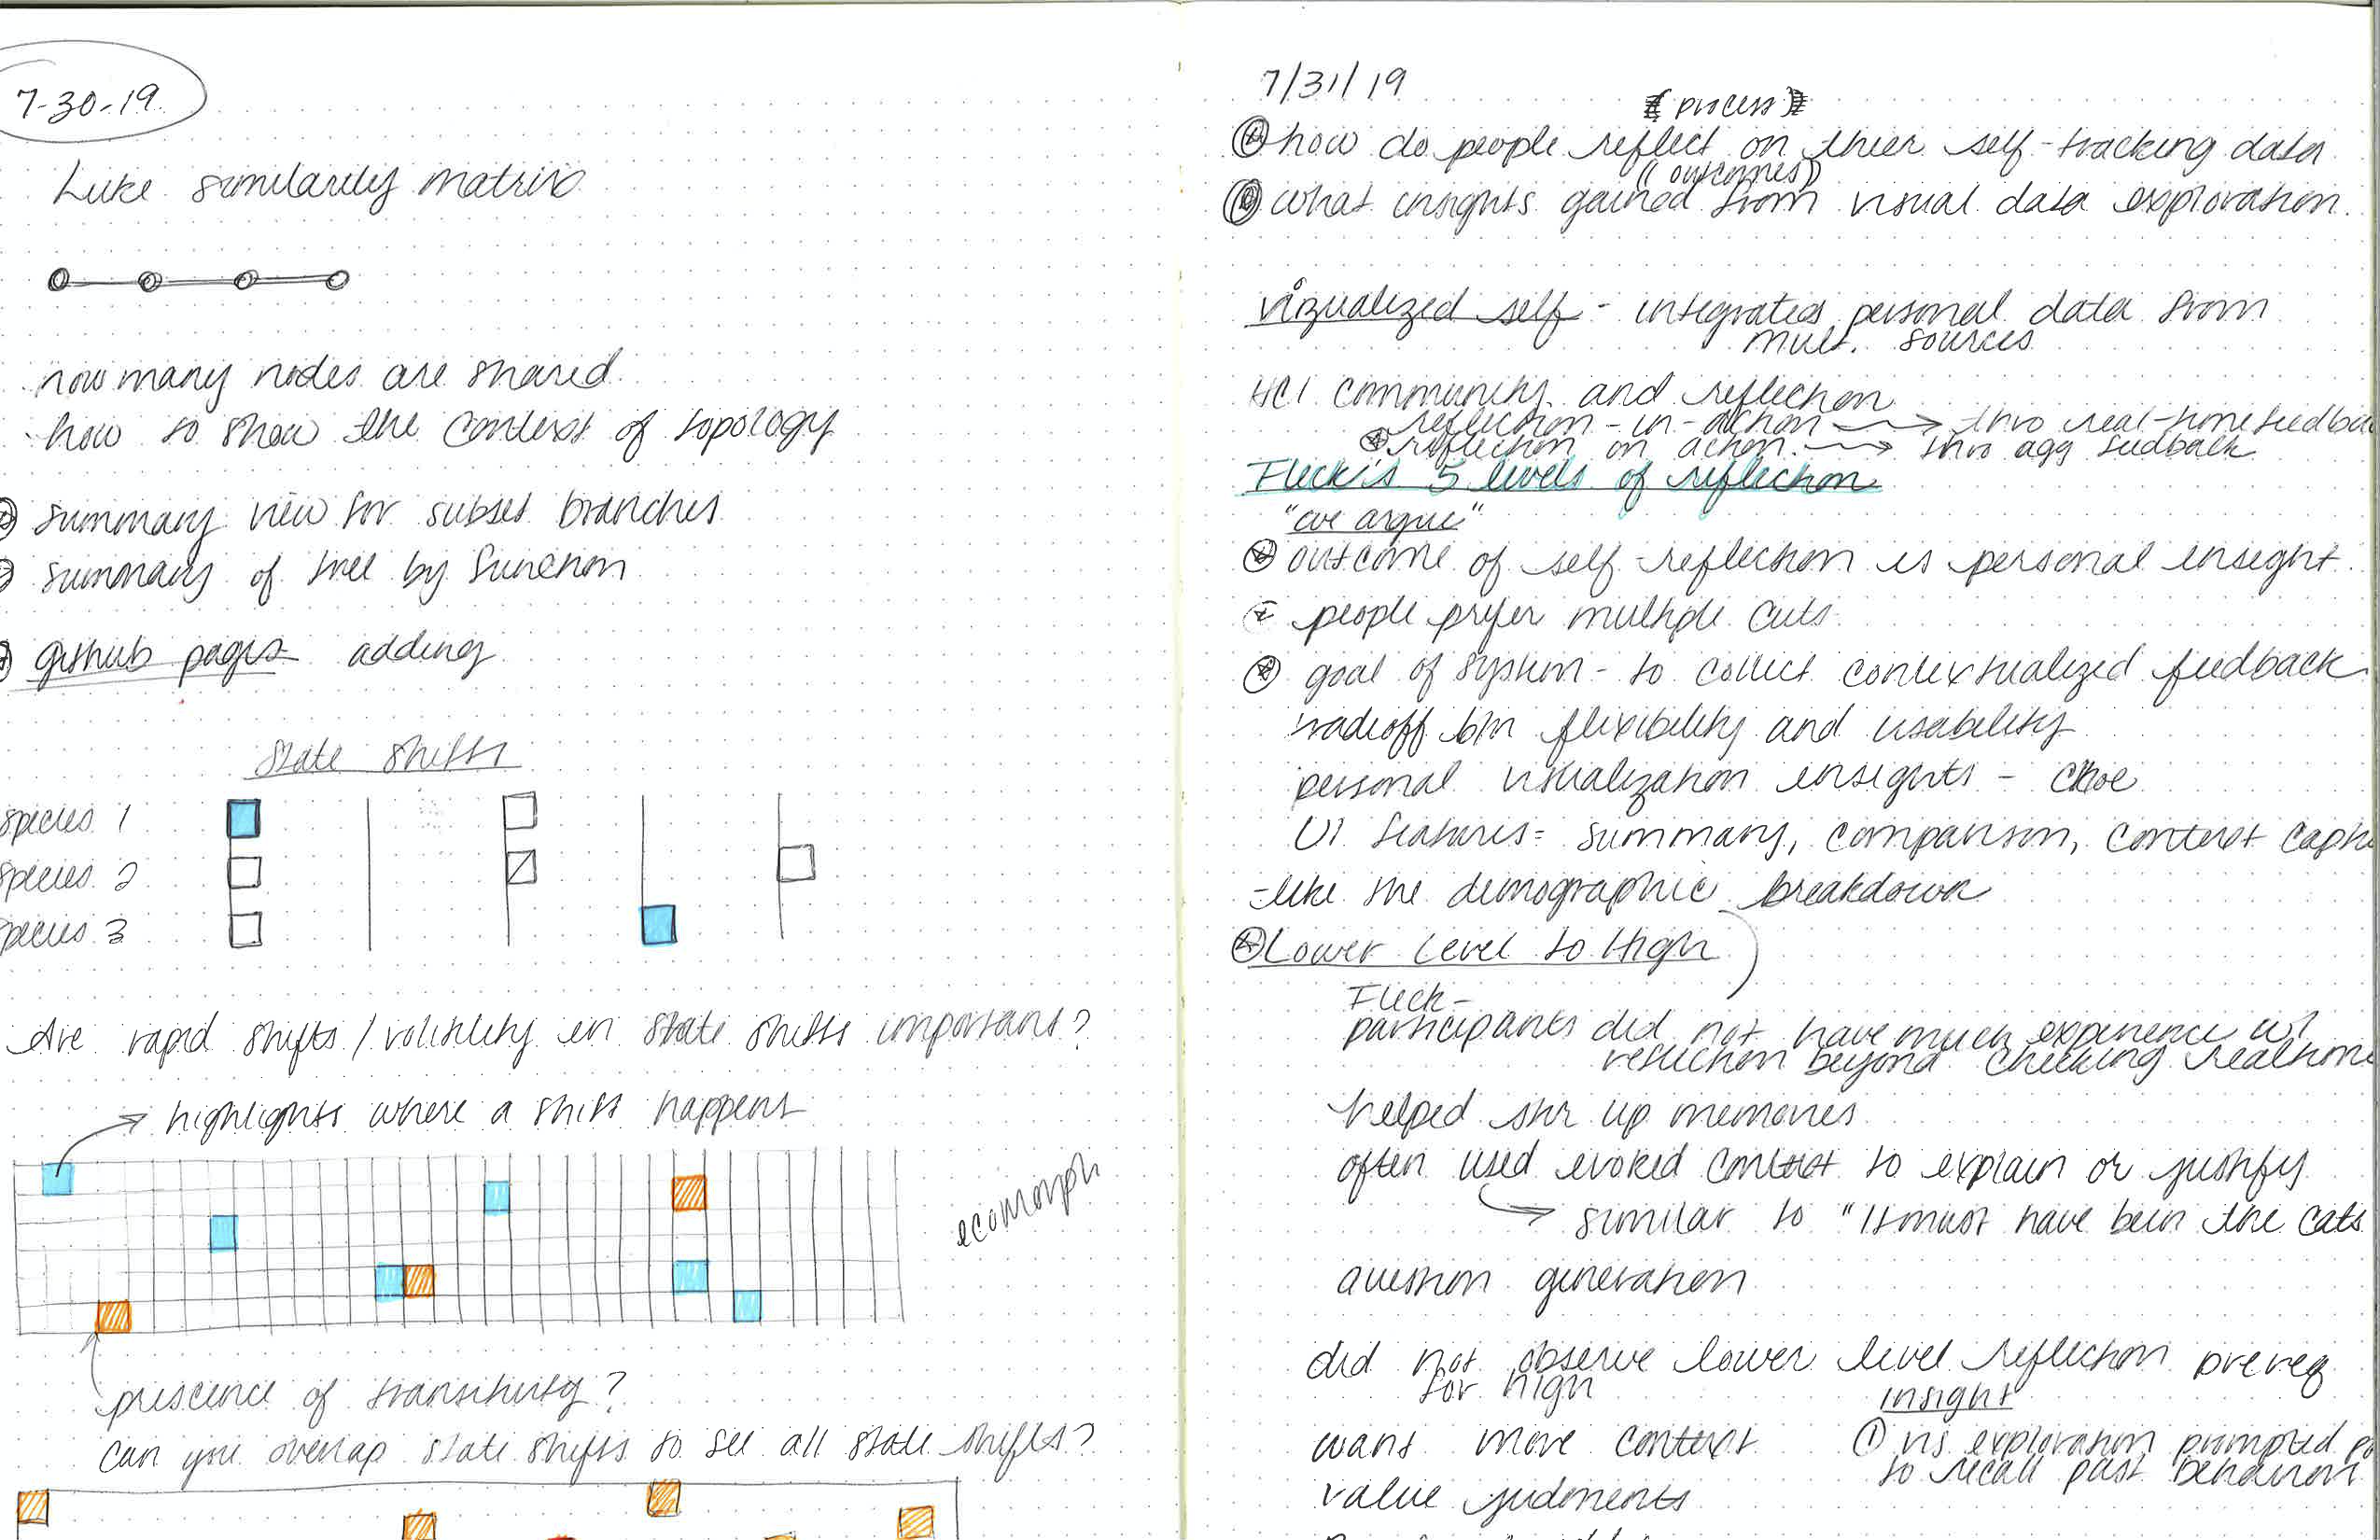 7-30-19
Like similarity matrix
how many nodes are shared
how to show the context of topology
summary view for subset branches
summary of tree by function
github pages adding
State Shifts
species 1
species 2
species 3
Are rapid shifts / volitility in state shifts important?
highlights where a shift happens
ecomorph
prescence of transitivity?
can you overlap state shifts to see all state shifts?
7/31/19
(process)
how do people reflect on thier self-tracking data
(outcomes)
what insights gained from visual data exploration.
vizualized self - integrates personal data from
mult. sources
HCI community and reflection
reflection-in-action → thro real-time feedba
reflection on action → thro agg feedback
Fleck's 5 levels of reflection
"we argue"
outcome of self-reflection is personal insight.
people prefer multiple cuts
goal of system - to collect contextualized feedback
tradeoff b/n flexibility and usability
personal visualization insights - Choe
UI features = summary, comparison, context captu
- like the demographic breakdown
Lower Level to High
Fleck-
participants did not have much experience w/
reflection beyond checking realtime
helped stir up memories
often used evoked context to explain or justify
similar to "It must have been the cats
question generation
did not observe lower level reflection prereq
for high
insight
want more context
① vis exploration prompted
to recall past behavior
value judments